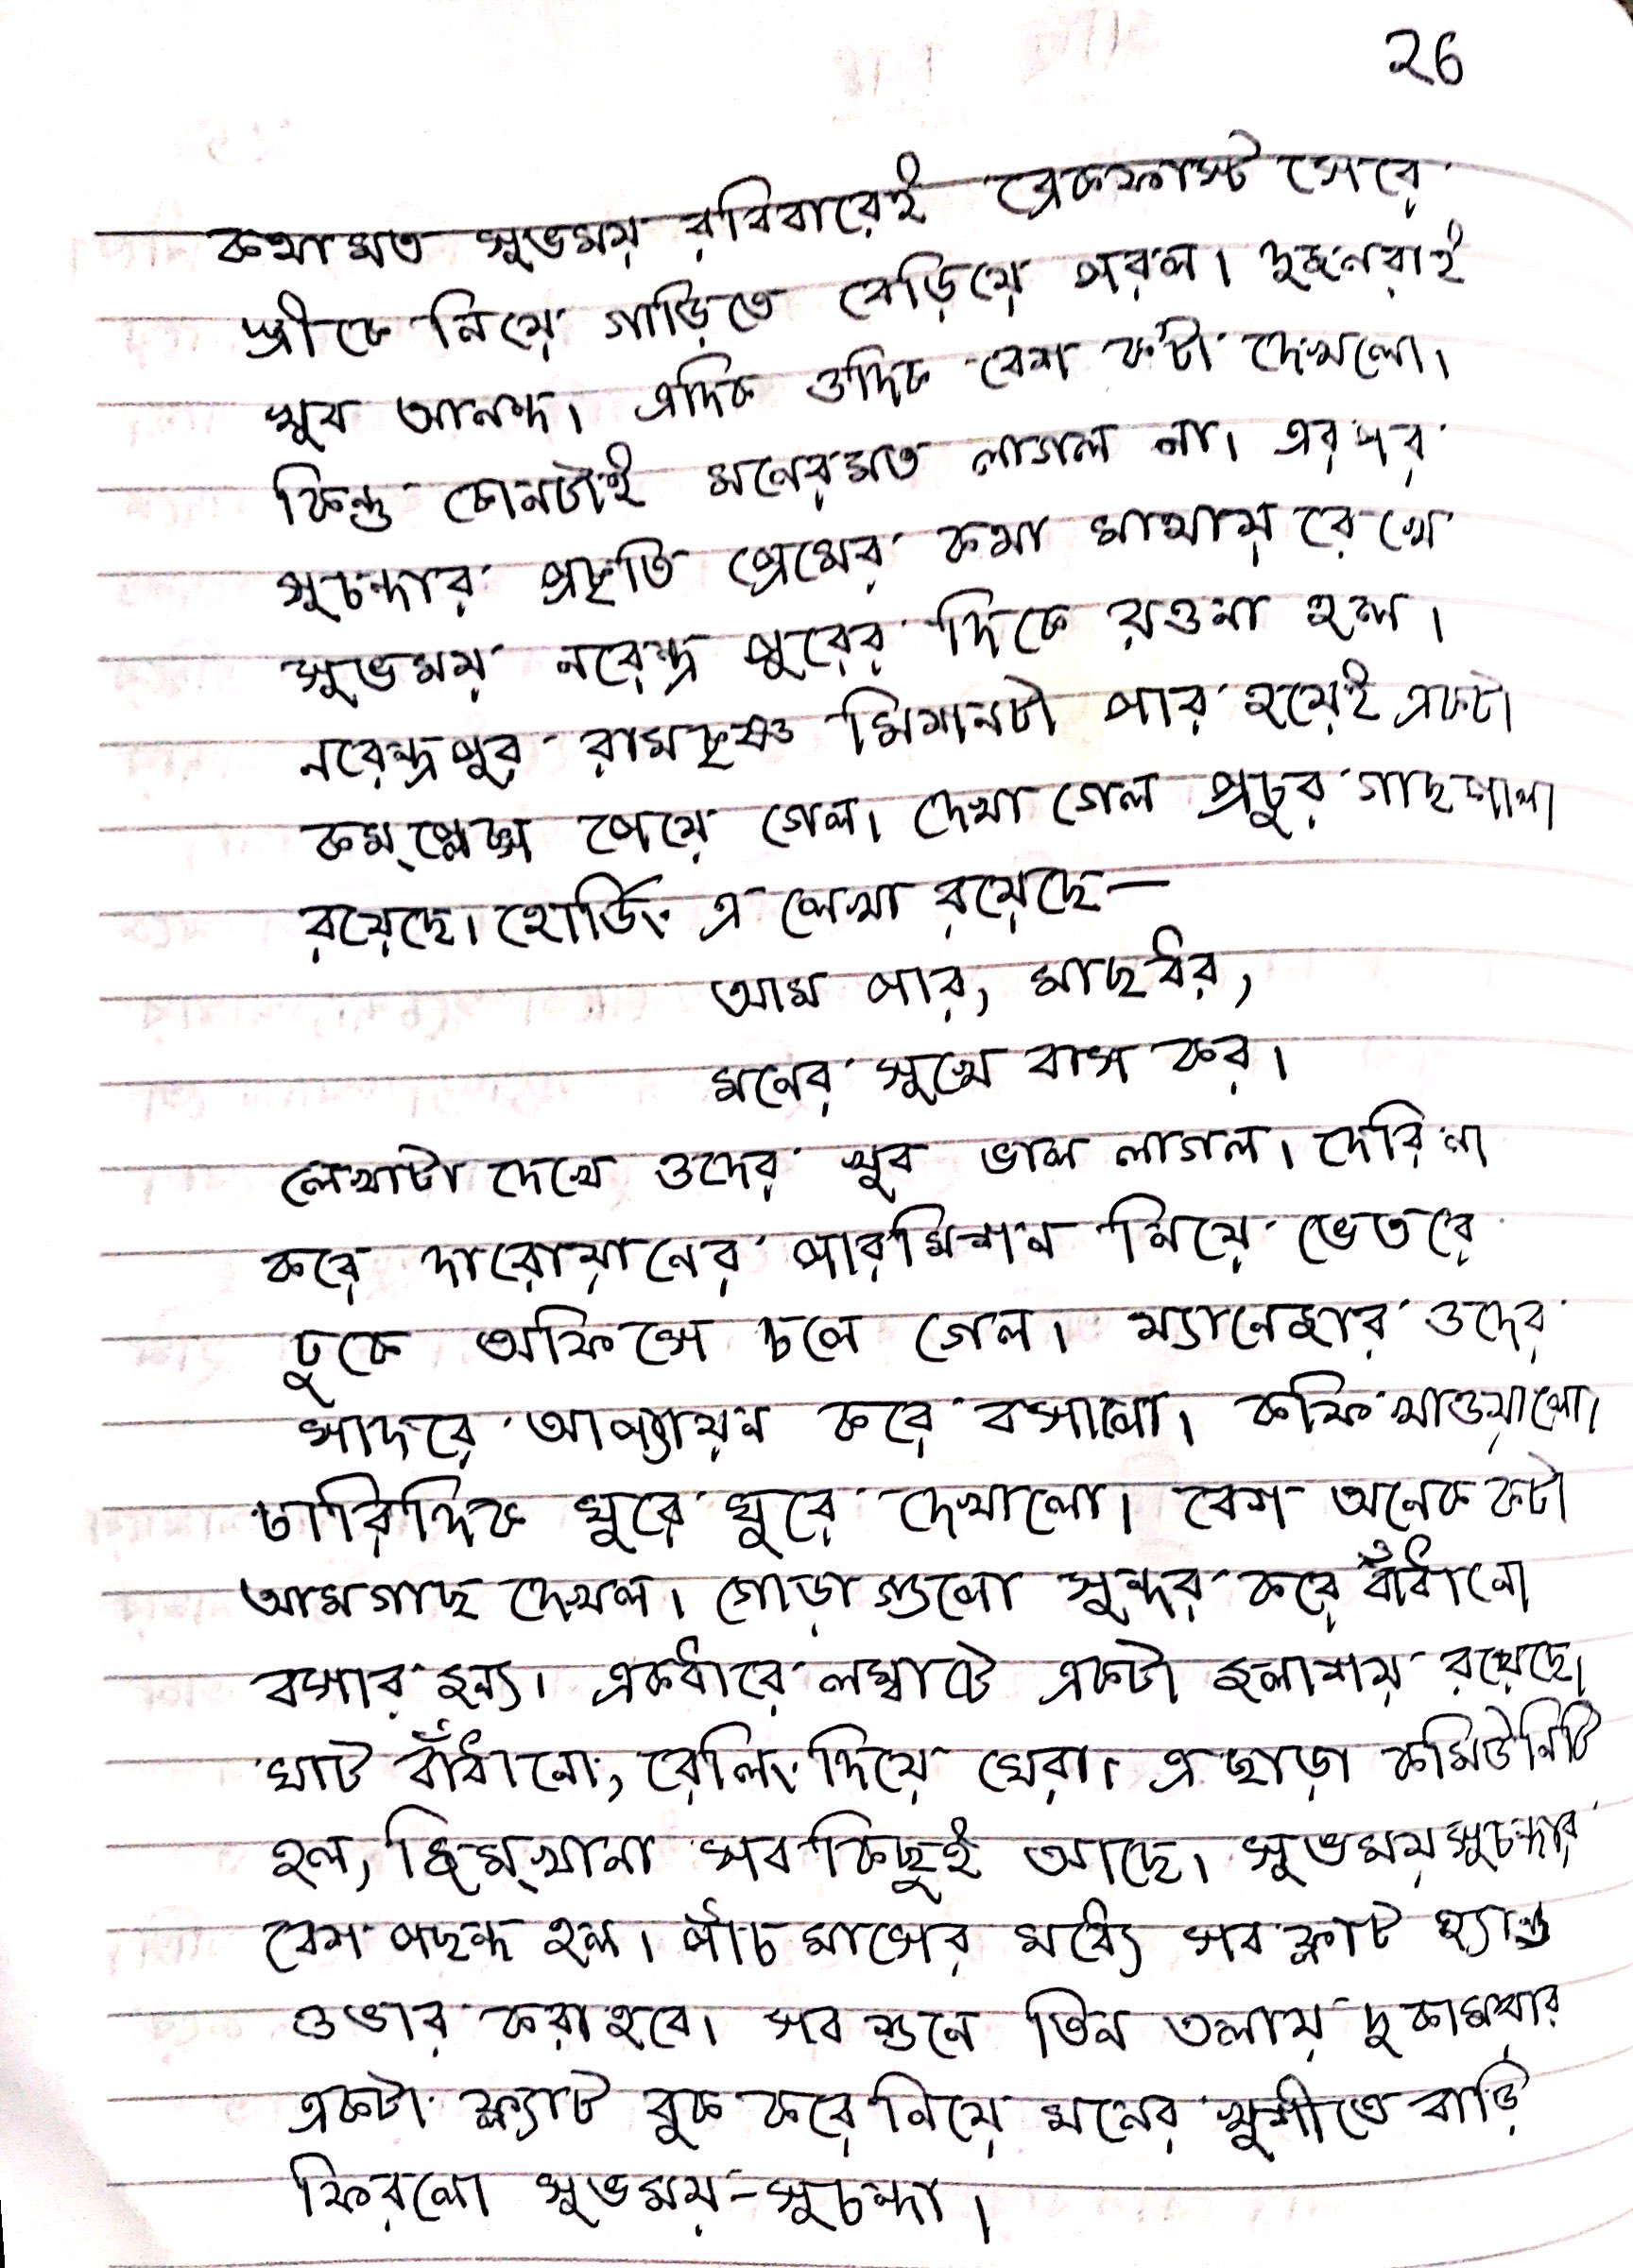 26
কথামত সুভময় রবিবারেই ব্রেকফাস্ট সেরে
স্ত্রীকে নিয়ে গাড়িতে বেড়িয়ে পরল। দুজনরাই
খুব আনন্দ। এদিক ওদিক বেশ ক'টা দেখলো।
কিন্তু কোনটাই মনেরমত লাগল না। এরপর
সুচন্দার প্রকৃতি প্রেমের কথা মাথায় রেখে
সুভময় নরেন্দ্র পুরের দিকে রওনা হল।
নরেন্দ্রপুর রামকৃষ্ণ মিশনটা পার হয়েই একটা
কম্প্লেক্স পেয়ে গেল। দেখা গেল প্রচুর গাছপালা
রয়েছে। হোর্ডিং এ লেখা রয়েছে—
আম পার, মাছ ধর,
মনের সুখে বাস কর।
লেখাটা দেখে ওদের খুব ভাল লাগল। দেরি না
করে দারোয়ানের পারমিশন নিয়ে ভেতরে
ঢুকে অফিসে চলে গেল। ম্যানেজার ওদের
সাদরে আপ্যায়ন করে বসালো। কফি খাওয়ালো।
চারিদিক ঘুরে ঘুরে দেখালো। বেশ অনেক কটা
আমগাছ দেখল। গোড়া গুলো সুন্দর করে বাঁধানো
বসার জন্য। একধারে লম্বাটে একটা জলাশয় রয়েছে।
ঘাট বাঁধানো, রেলিং দিয়ে ঘেরা। এ ছাড়া কমিউনিটি
হল, জিম্খানা সব কিছুই আছে। সুভময় সুচন্দার
বেশ পছন্দ হল। পাঁচ মাসের মধ্যে সব ফ্লাট হ্যান্ড
ওভার করা হবে। সব শুনে তিন তলায় দু কামরার
একটা ফ্ল্যাট বুক করে নিয়ে মনের খুশীতে বাড়ি
ফিরলো সুভময়-সুচন্দা।